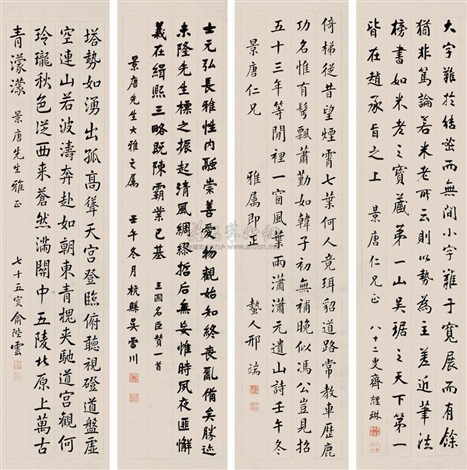 大字難於結密而無間小字難於寬展而有餘
猶非篤論若米老所云則以勢為主差近筆法
榜書如米老之寶藏第一山吳琚之天下第一
皆在趙承旨之上 景唐仁兄正 八十二叟齊耀琳
倚梯從昔望煙霄七葉何人竟珥貂道路常教車歷鹿
功名惟有髩飄蕭勤如韓子初無補晚似馮公豈見招
五十三年等閒裡一窗風葉雨瀟瀟元遺山詩壬午冬
景唐仁兄 雅属即正 蟄人邢端
士元弘長雅性內融崇善愛物觀始知終喪亂備矣勝塗
未隆先生標之振起清風綢繆哲后無妄惟時夙夜匪懈
義在緝熙三略既陳霸業已基 三國名臣贊一首
景唐先生大雅之属 壬午冬月杭縣吳雷川
塔勢如湧出孤高聳天宮登臨俯聽視磴道盤虛
空連山若波濤奔赴如朝東青槐夾馳道宮觀何
玲瓏秋色從西來蒼然滿關中五陵北原上萬古
青濛濛 景唐先生雅正 七十五叟俞陛雲